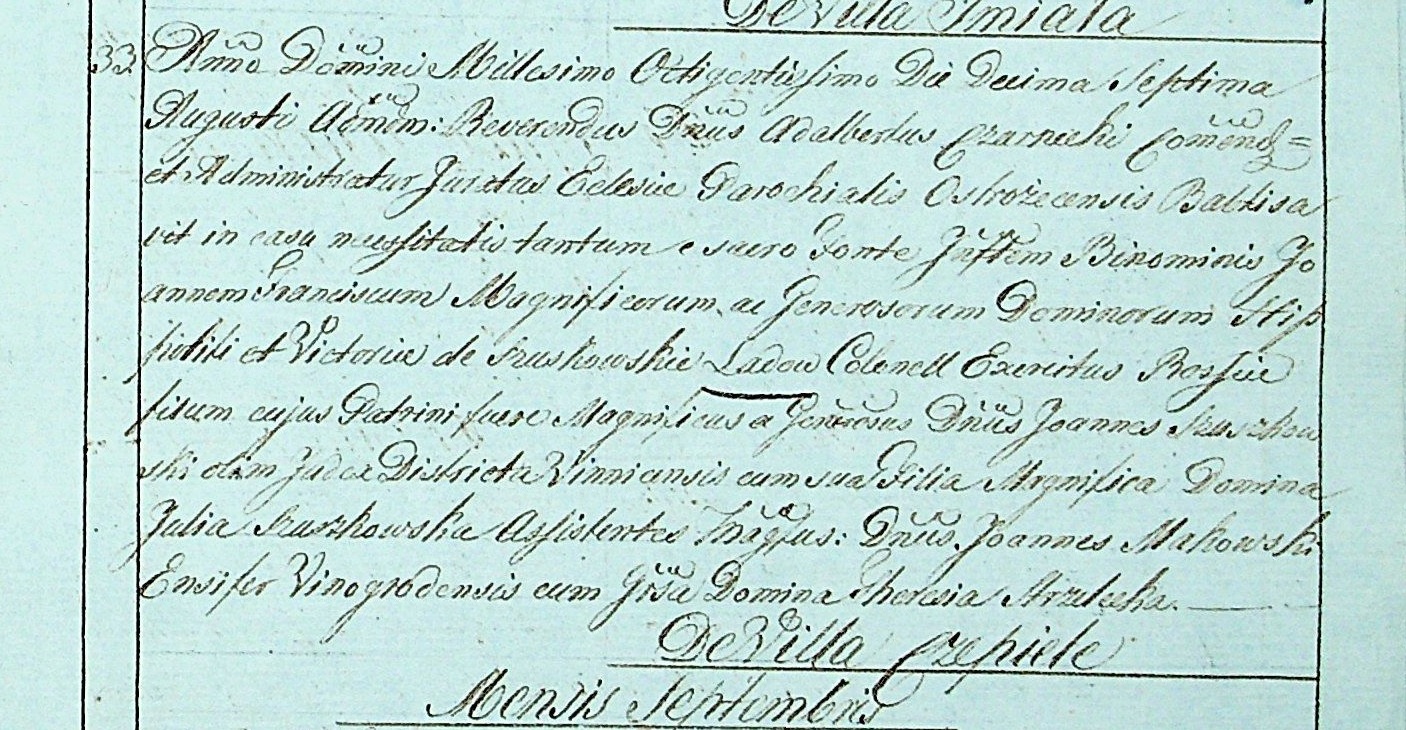 De Villa Smiała
33. Anno Domini Millesimo Octigentissimo Die Decima Septima
Augusti Admdm: Reverendus Dnus Adalbertus Czarnecki Comend=
et Administratur Juratus Eclesiæ Parochialis Ostrożecensis Babtisa
vit in casu necessitatis tantum e sacro Fonte Inftem Binominis Jo
annem Franciscum Magnificorum ac Generosorum Dominorum Hip
politi et Victoriæ de Szuszkowskie Ladou Colonell Exercitus Rossiæ
filium cujus Patrini fuere Magnificus a Generosus Dnus Joannes Szuszkow
ski olim Judex Districta Winnicensis cum sua Filia Magnifica Domina
Julia Szuszkowska Assistentes Magfus: Dnus Joannes Makowski
Ensifer Vinogrodensis cum Grsa Domina Theresia
De Villa Czepiele
Mensis Septembris